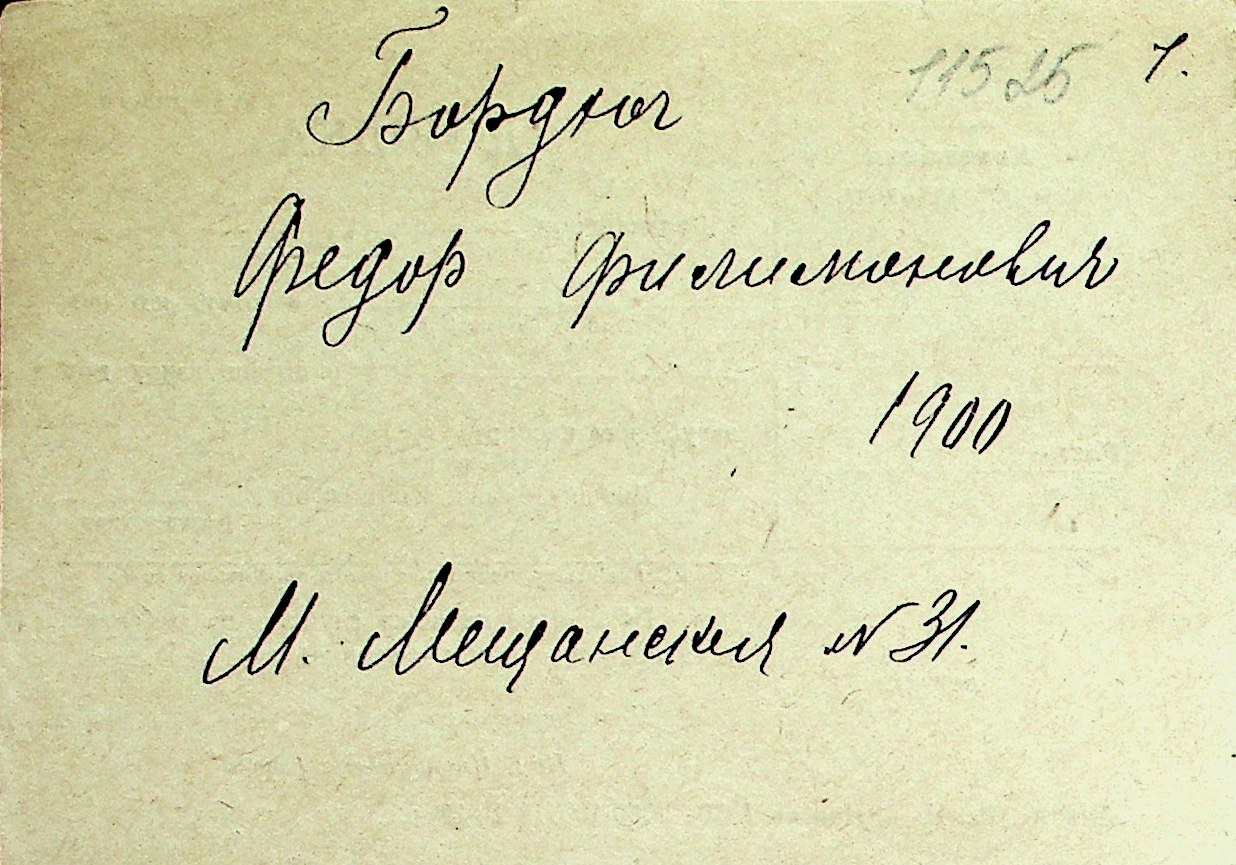 11525 1.
Бордюг
Федор Филимонович
1900
М. Мещанская № 31.